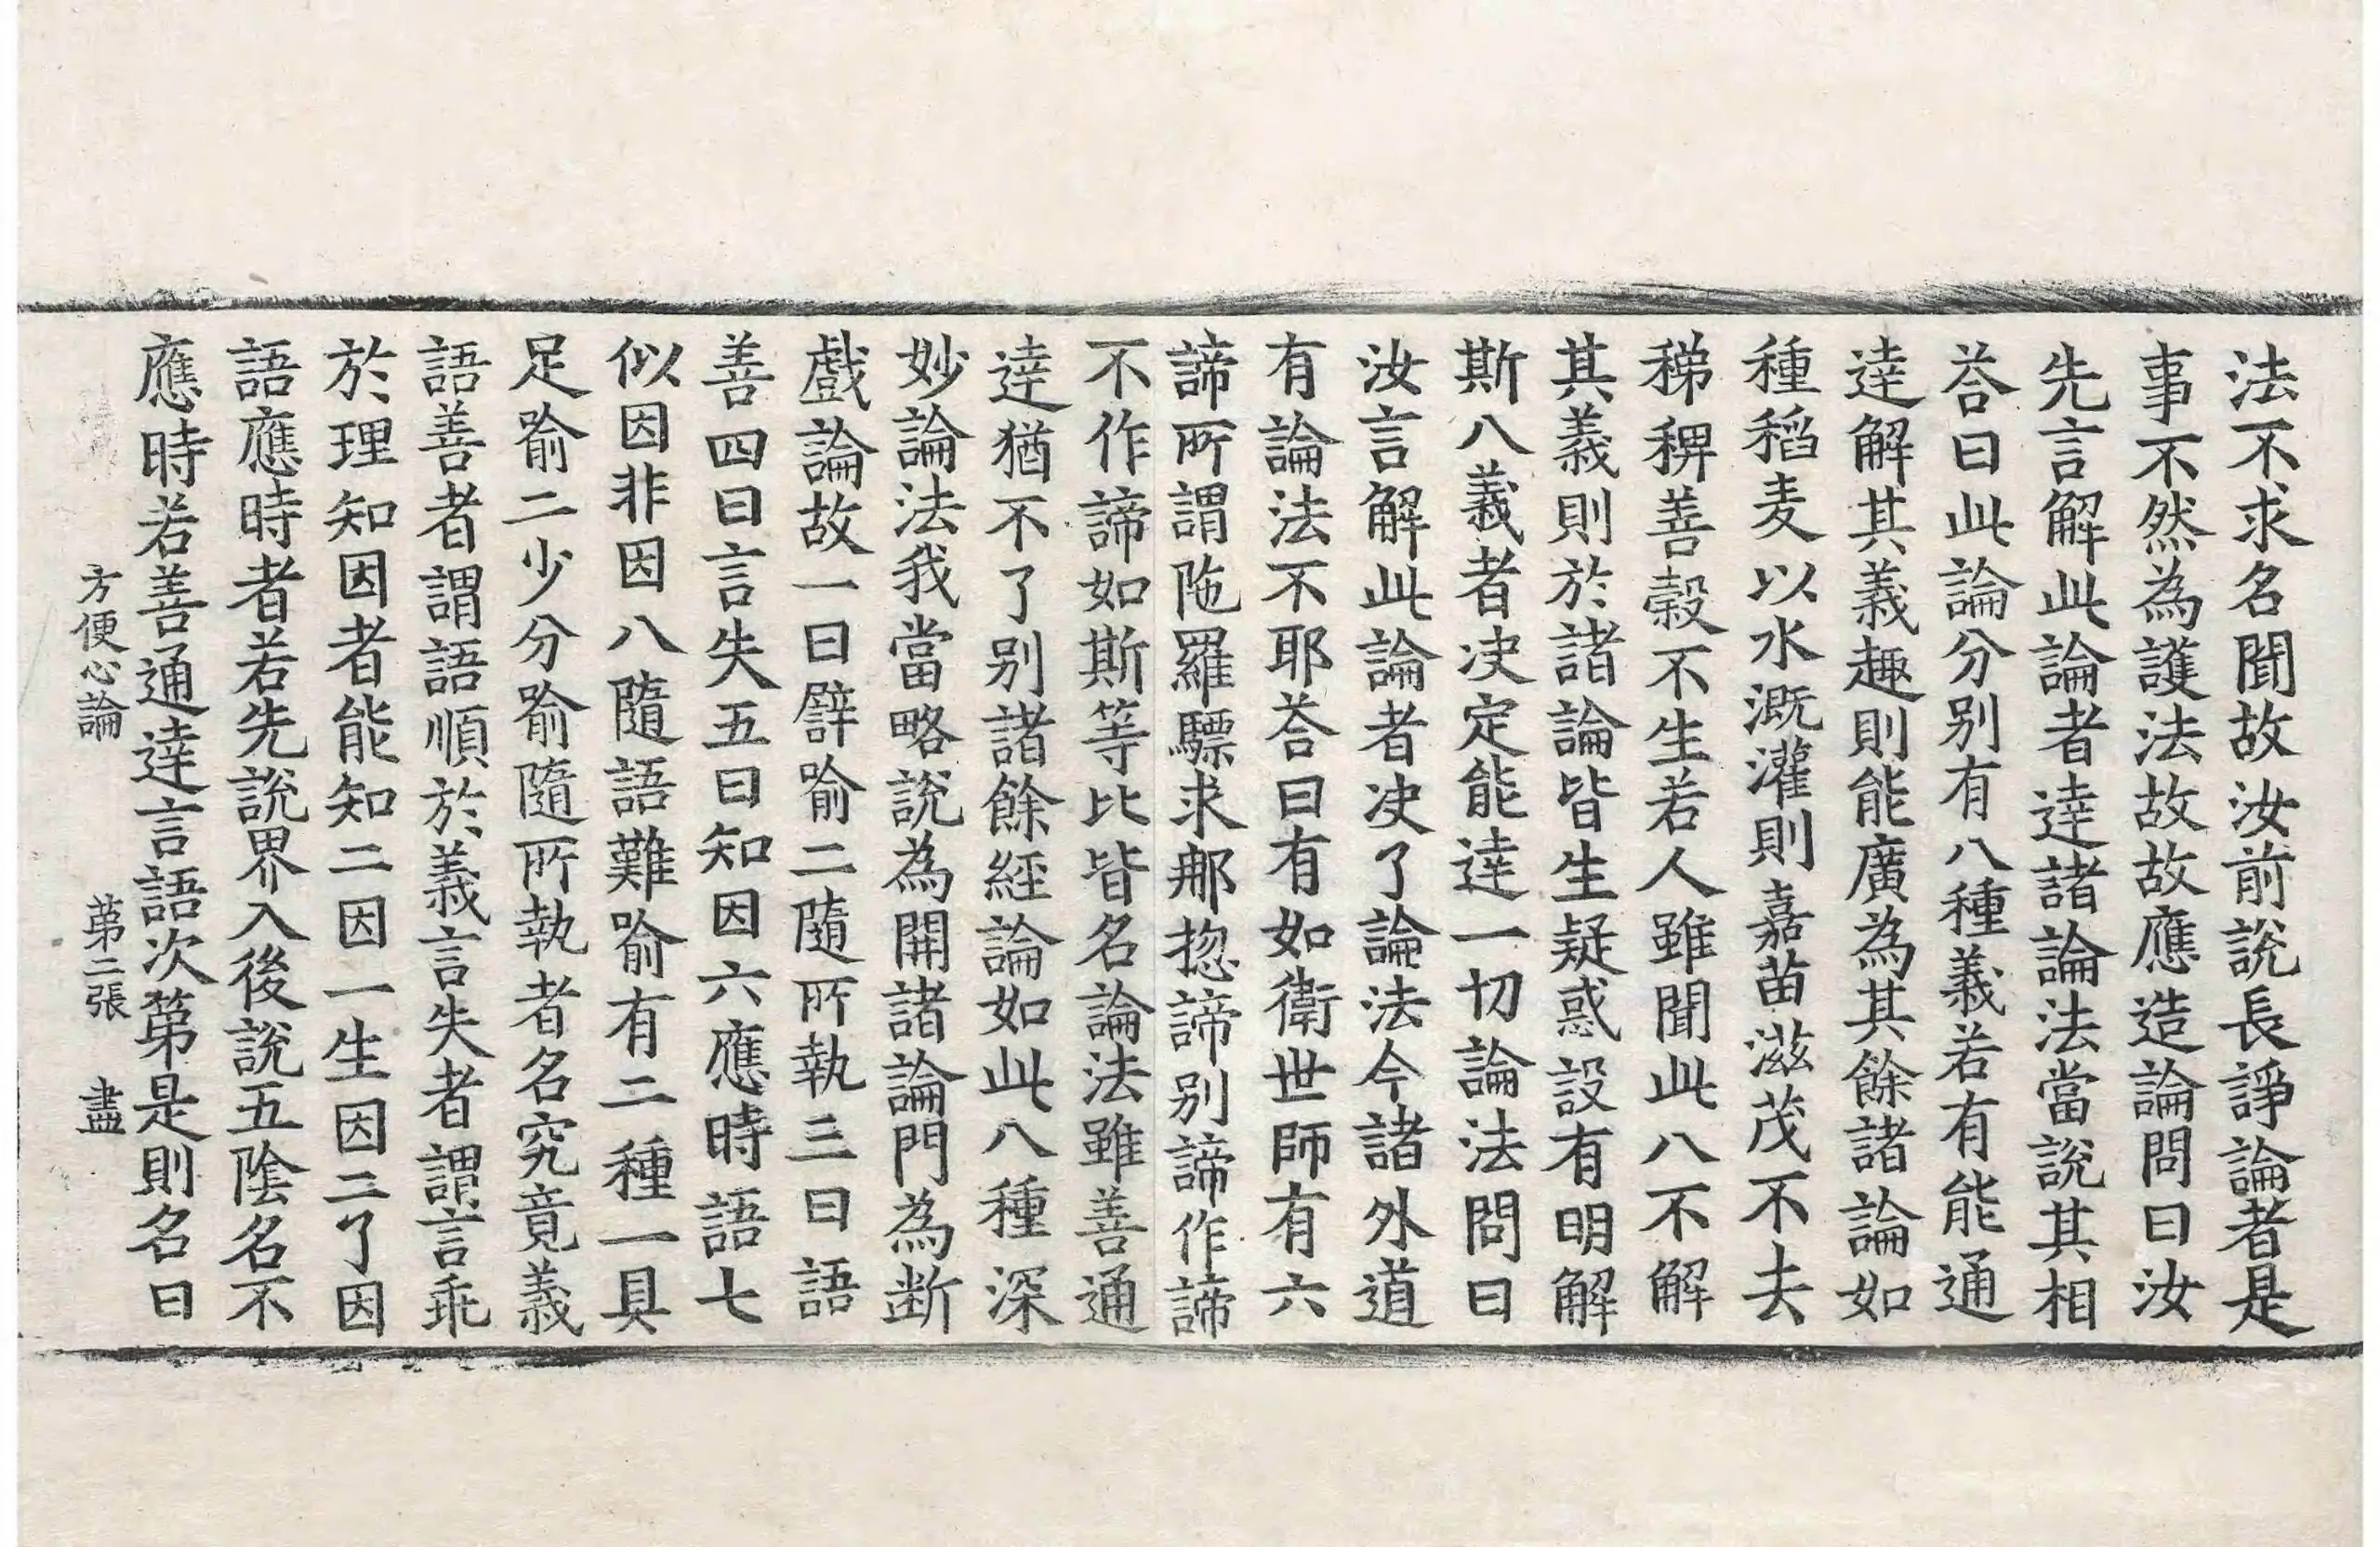 法不求名聞故汝前說長諍論者是
事不然為護法故故應造論問曰汝
先言解此論者逹諸論法當說其相
荅曰此論分別有八種義若有能通
逹解其義趣則能廣為其餘諸論如
種稻麦以水溉灌則嘉苗滋茂不去
稊稗善糓不生若人雖聞此八不解
其義則於諸論皆生疑惑設有明解
斯八義者决定能逹一切論法問曰
汝言解此論者决了論法今諸外道
有論法不耶荅曰有如衛世師有六
諦所謂陁羅驃求那揔諦別諦作諦
不作諦如斯等比皆名論法雖善通
逹猶不了別諸餘經論如此八種深
妙論法我當略說為開諸論門為断
戲論故一曰譬喻二隨所執三曰語
善四曰言失五曰知因六應時語七
似因非因八隨語難喻有二種一具
足喻二少分喻隨所執者名究竟義
語善者謂語順於義言失者謂言乖
於理知因者能知二因一生因二了因
語應時者若先說界入後說五陰名不
應時若善通逹言語次第是則名曰
方便心論　第二張　盡